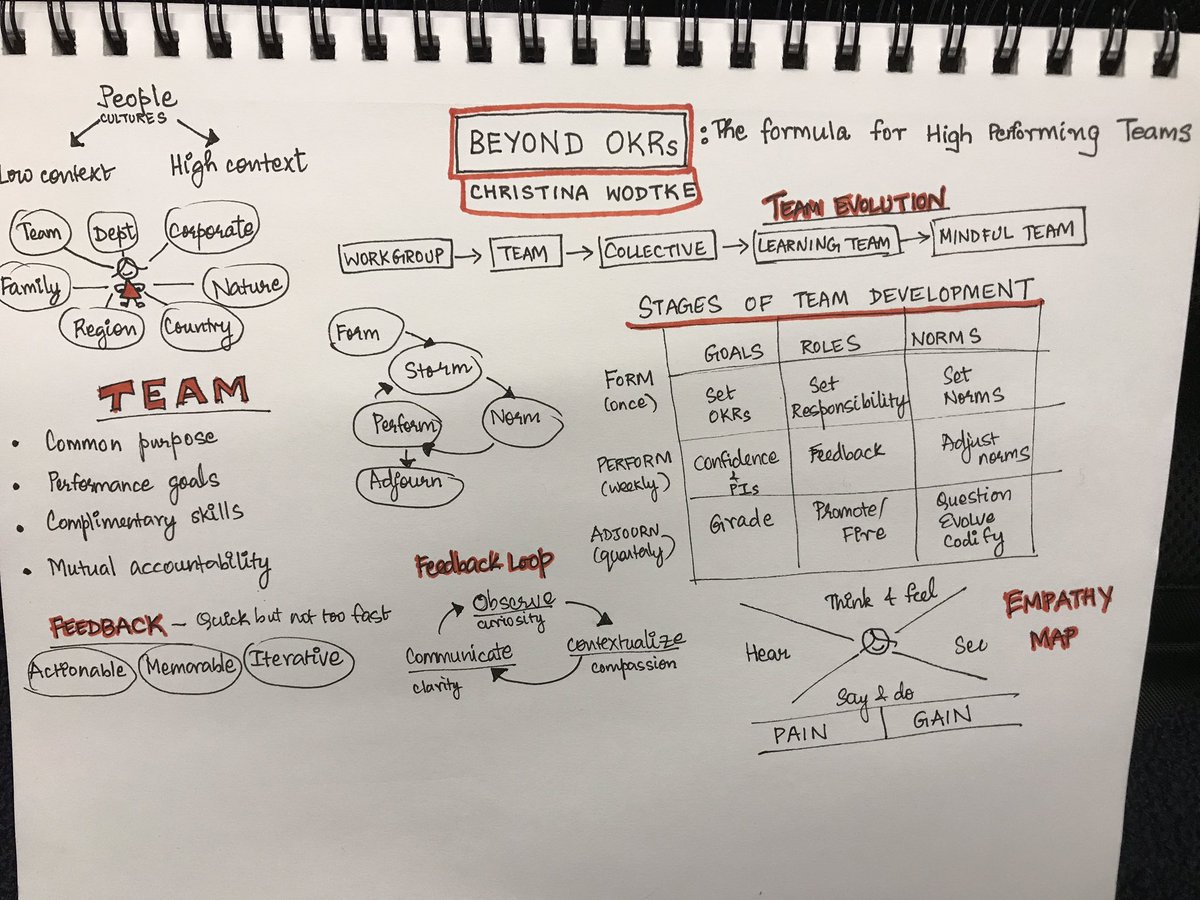 People
CULTURES
Low context
High context
Team
Dept
Corporate
Family
Nature
Region
Country
TEAM
• Common purpose
• Performance goals
• Complimentary skills
• Mutual accountability
FEEDBACK – Quick but not too fast
Actionable
Memorable
Iterative
BEYOND OKRs : The formula for High Performing Teams
CHRISTINA WODTKE
TEAM EVOLUTION
WORKGROUP
TEAM
COLLECTIVE
LEARNING TEAM
MINDFUL TEAM
Form
Storm
Norm
Perform
Adjourn
STAGES OF TEAM DEVELOPMENT
GOALS ROLES NORMS
FORM
(once)
Set
OKRs
Set
Responsibility
Set
Norms
PERFORM
(weekly)
Confidence
&
PIs
Feedback
Adjust
norms
ADJOURN
(quartaly)
Grade
Promote/
Fire
Question
Evolve
Codify
Feedback Loop
Observe
curiosity
Contextualize
compassion
Communicate
clarity
EMPATHY
MAP
Think & feel
Hear
See
Say & do
PAIN GAIN